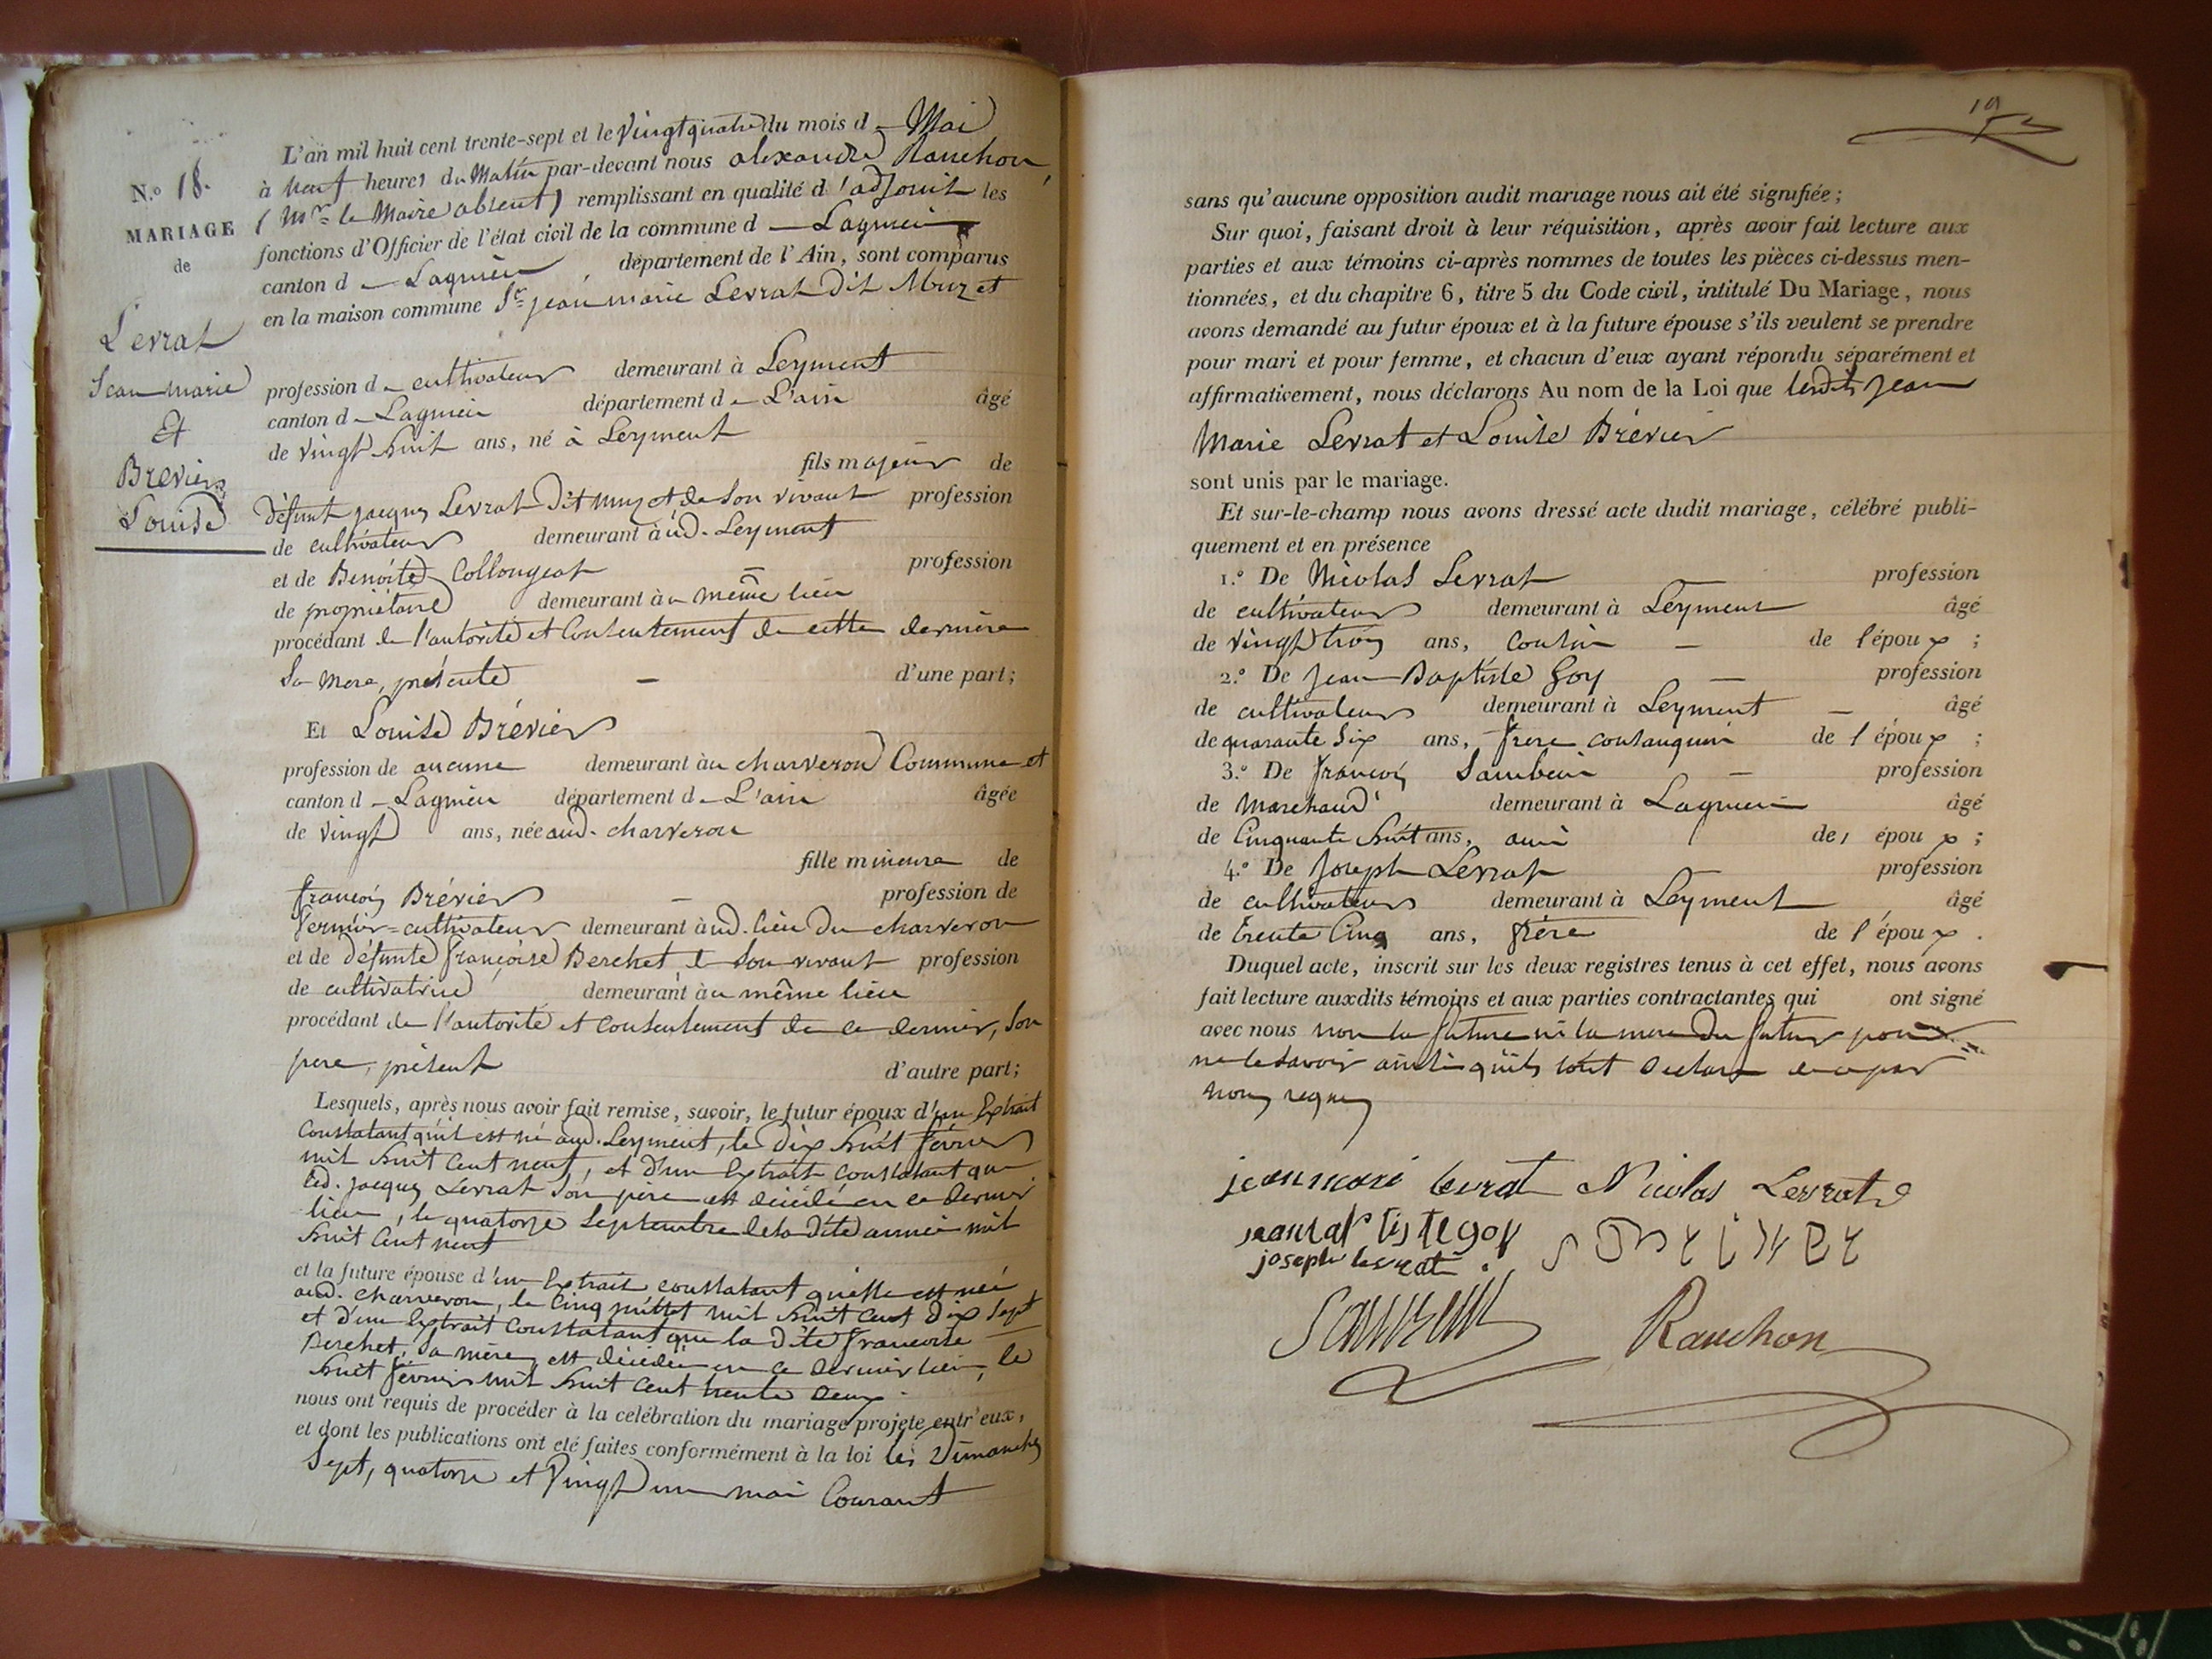 N.º 18.
MARIAGE
de
Levrat
Jean marie
Et
Brevier
Louise
L'an mil huit cent trente-sept et le Vingt quatre du mois d - Mai
à neuf heures du Matin par-devant nous alexandre Ranchon,
(Mr. le Maire absent) remplissant en qualité d'adjoint les
fonctions d'Officier de l'état civil de la commune d - Lagnieu
canton d - Lagnieu, département de l'Ain, sont comparus
en la maison commune Sr. jean marie Levrat dit Muzet
profession d - cultivateur demeurant à Leyment
canton d - Lagnieu département d - L'ain âgé
de vingt huit ans, né à Leyment
fils majeur de
défunt jacques Levrat dit muzet de son vivant profession
de cultivateur demeurant à ud. Leyment
et de Benoite Collongeat profession
de propriétaire demeurant à u même lieu
procédant de l'autorité et Consentement de cette dernière
Sa mere, présente d'une part;
Et Louise Brévier
profession de aucune demeurant àu charveron Commune et
canton d - Lagnieu département d - L'ain âgée
de vingt ans, née aud. charveron
fille mineure de
françois Brévier profession de
fermier=cultivateur demeurant à ud. lieu du charveron
et de défunte françoise Berchet de son vivant profession
de cultivatrice demeurant àu même lieu
procédant de l'autorité et consentement de ce dernier, son
pere, présent d'autre part;
Lesquels, après nous avoir fait remise, savoir, le futur époux d'un Extrait
Constatant qu'il est né aud. Leyment, le dix huit février
mil huit cent neuf, et d'un Extrait constatant que
led. jacques Levrat son père est décédé en ce dernier
lieu, le quatorze Septembre de la dite année mil
huit Cent neuf
et la future épouse d'un Extrait constatant qu'elle est née
aud. charveron, le Cinq juillet mil huit cent dix sept
et d'un Extrait Constatant que la dite françoise
Berchet, sa mère, est décédée en ce dernier lieu, le
huit février mil huit cent trente deux.
nous ont requis de procéder à la celébration du mariage projete entr'eux,
et dont les publications ont eté faites conformément à la loi les Dimanches
Sept, quatorze et Vingt un mai Courant
19
sans qu'aucune opposition audit mariage nous ait été signifiée;
Sur quoi, faisant droit à leur réquisition, après avoir fait lecture aux
parties et aux témoins ci-après nommes de toutes les pièces ci-dessus men-
tionnées, et du chapitre 6, titre 5 du Code civil, intitulé Du Mariage, nous
avons demandé au futur époux et à la future épouse s'ils veulent se prendre
pour mari et pour femme, et chacun d'eux ayant répondu séparément et
affirmativement, nous déclarons Au nom de la Loi que lesdits jean
Marie Levrat et Louise Brévier
sont unis par le mariage.
Et sur-le-champ nous avons dressé acte dudit mariage, célébré publi-
quement et en présence
1.º De Nicolas Levrat profession
de cultivateur demeurant à Leyment âgé
de vingt trois ans, cousin de l'époux;
2.º De jean Baptiste Goy profession
de cultivateur demeurant à Leyment âgé
de quarante six ans, frere consanguin de l'époux;
3.º De françois Sambuin profession
de Marchand demeurant à Lagnieu âgé
de Cinquante huit ans, ami de l'époux;
4.º De joseph Levrat profession
de cultivateur demeurant à Leyment âgé
de trente Cinq ans, frère de l'époux.
Duquel acte, inscrit sur les deux registres tenus à cet effet, nous avons
fait lecture auxdits témoins et aux parties contractantes qui ont signé
avec nous non la future ni la mere du futur pour
ne le savoir ainsi qu'ils l'ont déclaré de ce par
nous requis
jean marie levrat Nicolas Levrat
jean batistegoy
joseph levrat
Ranchon